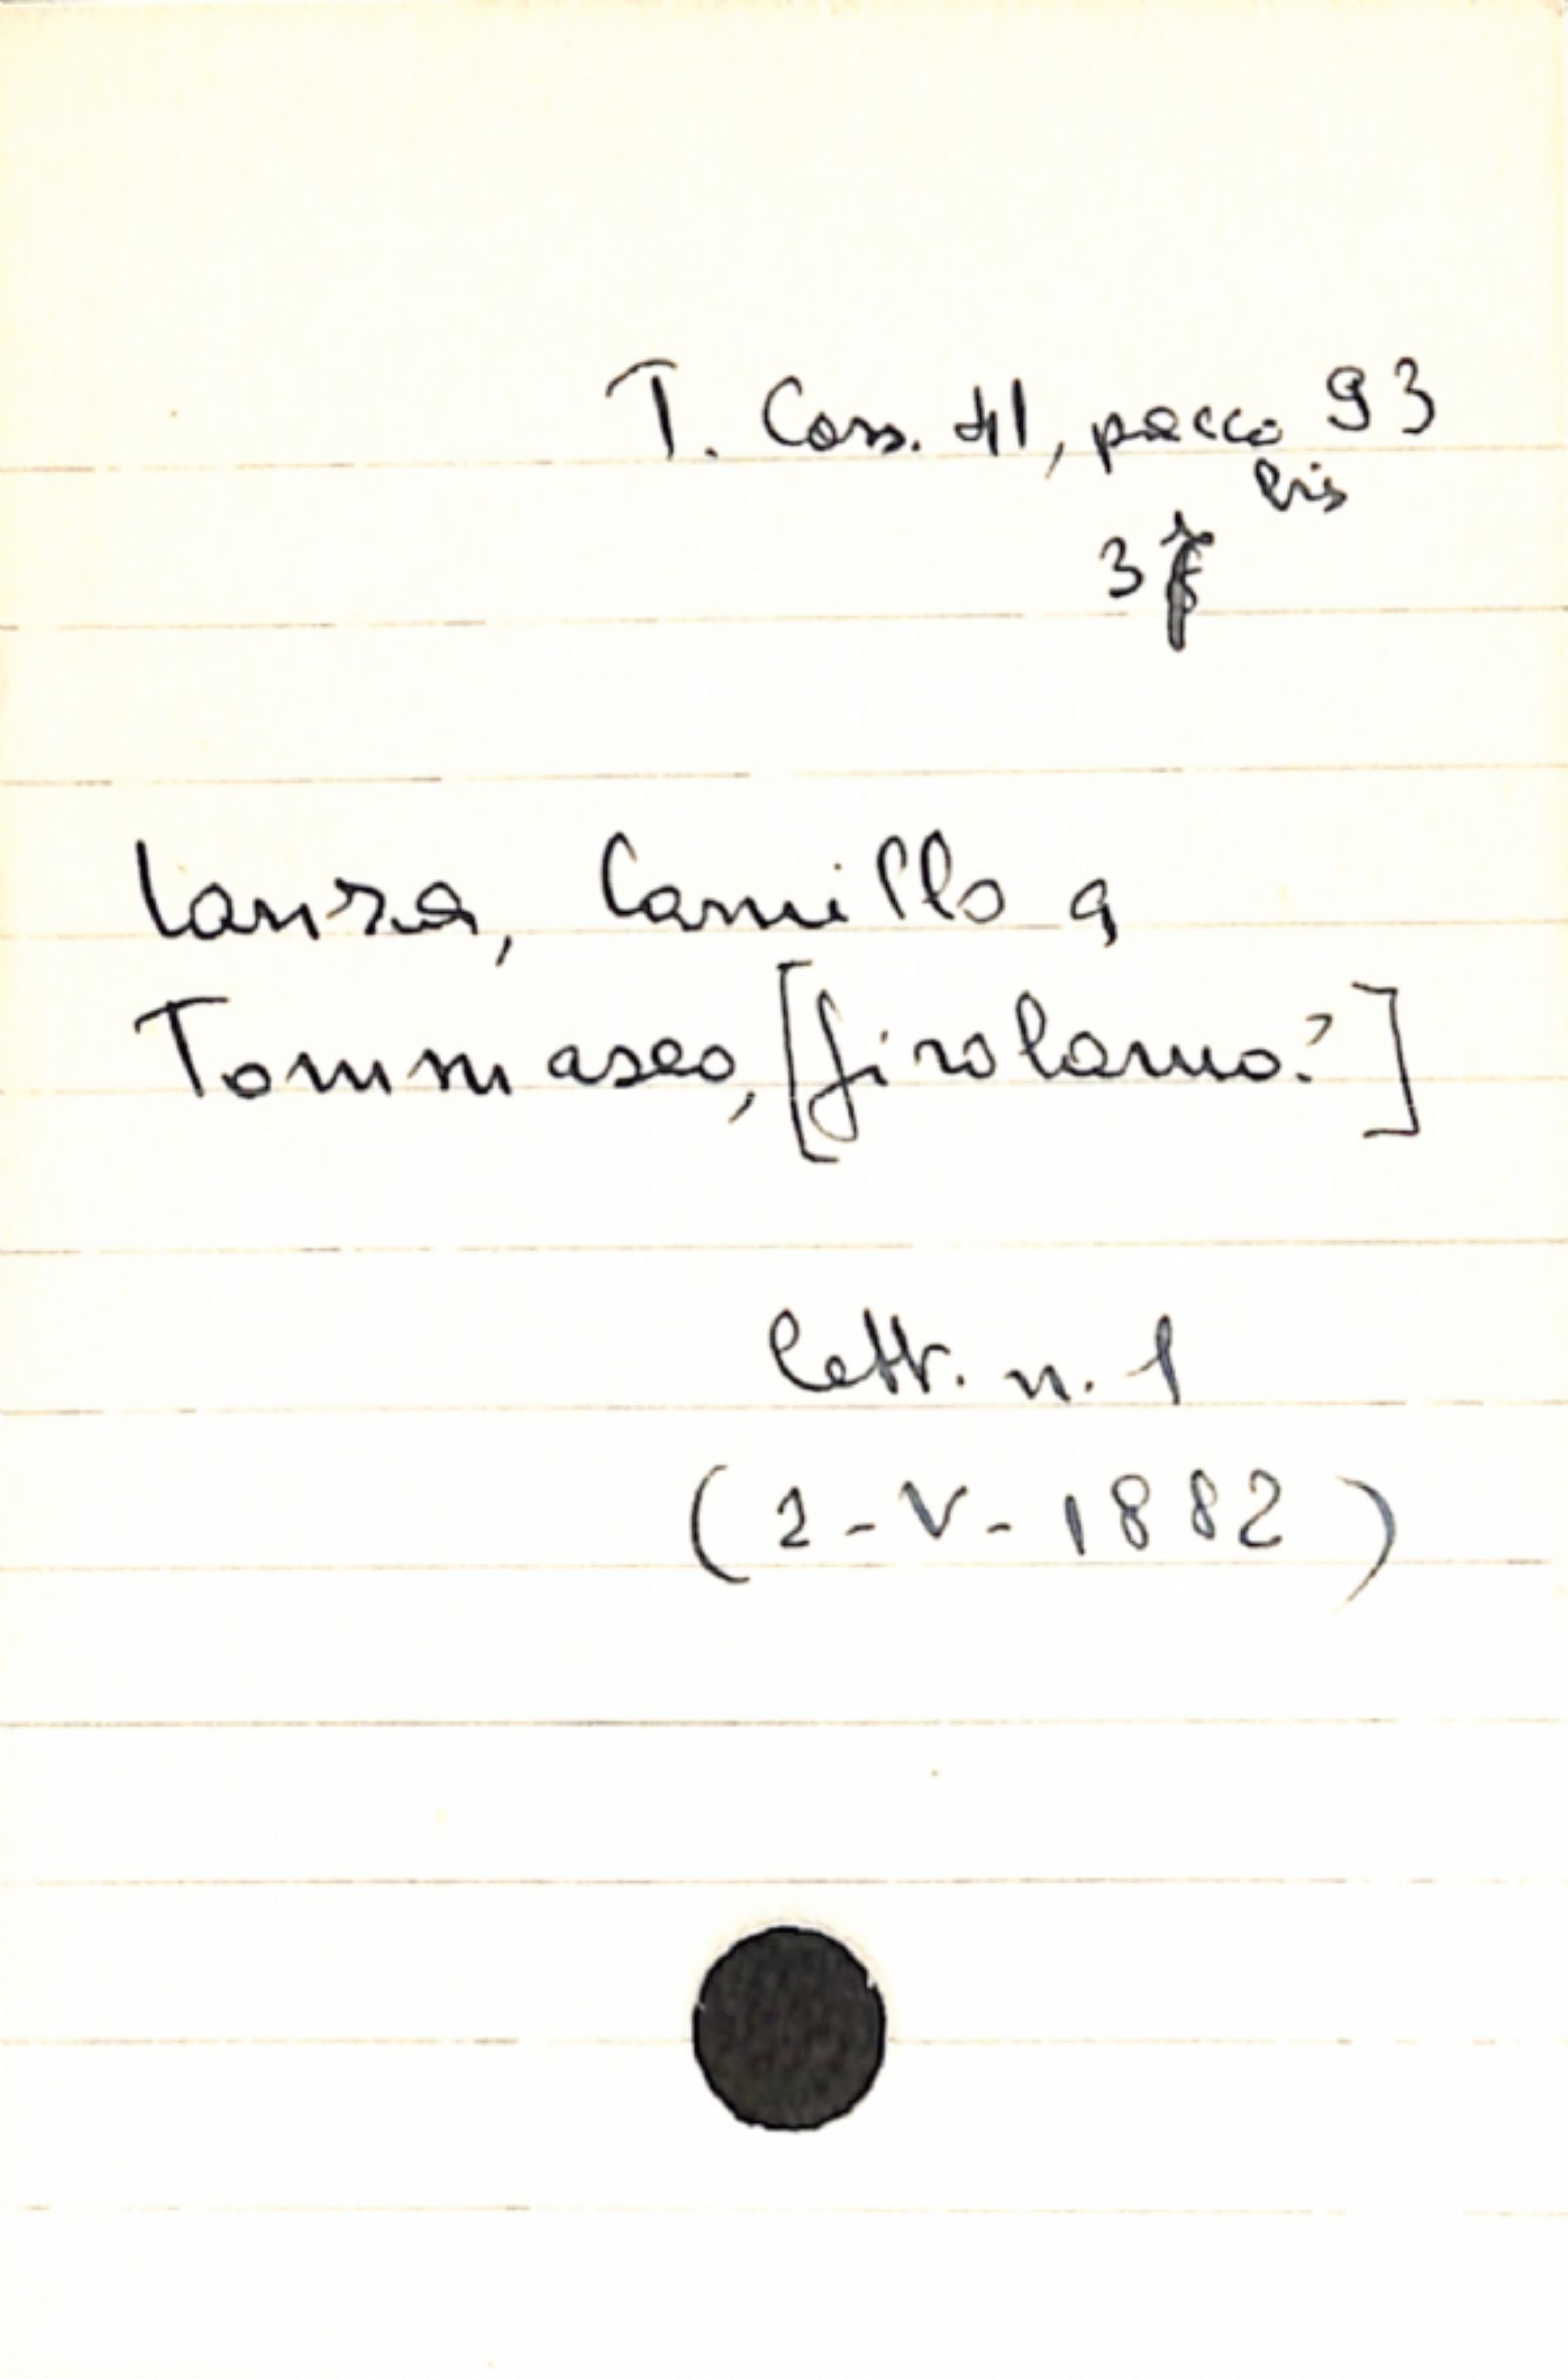 T. Cass. 41, pacco 93
bis
37
Lanza, Camillo a
Tommaseo, [Girolamo?]
Lett. n. 1
(2-V-1882)